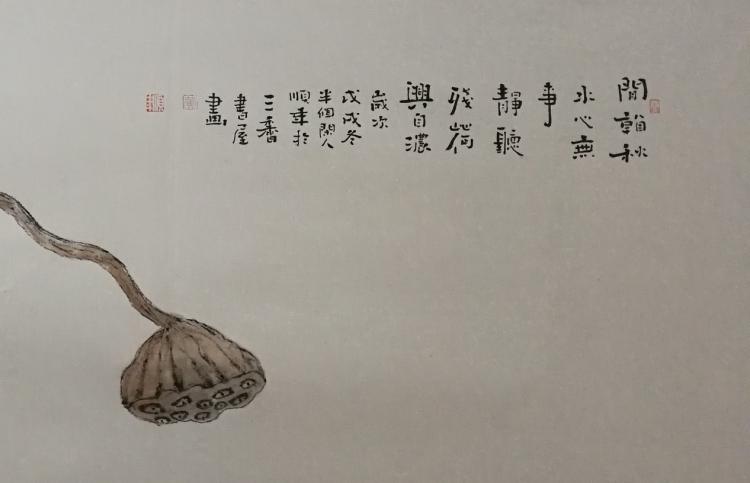 閒對秋
水心無
事
靜聽
殘荷
興自濃
歲次
戊戌冬
半個閑人
順年於
三香
書屋
畫